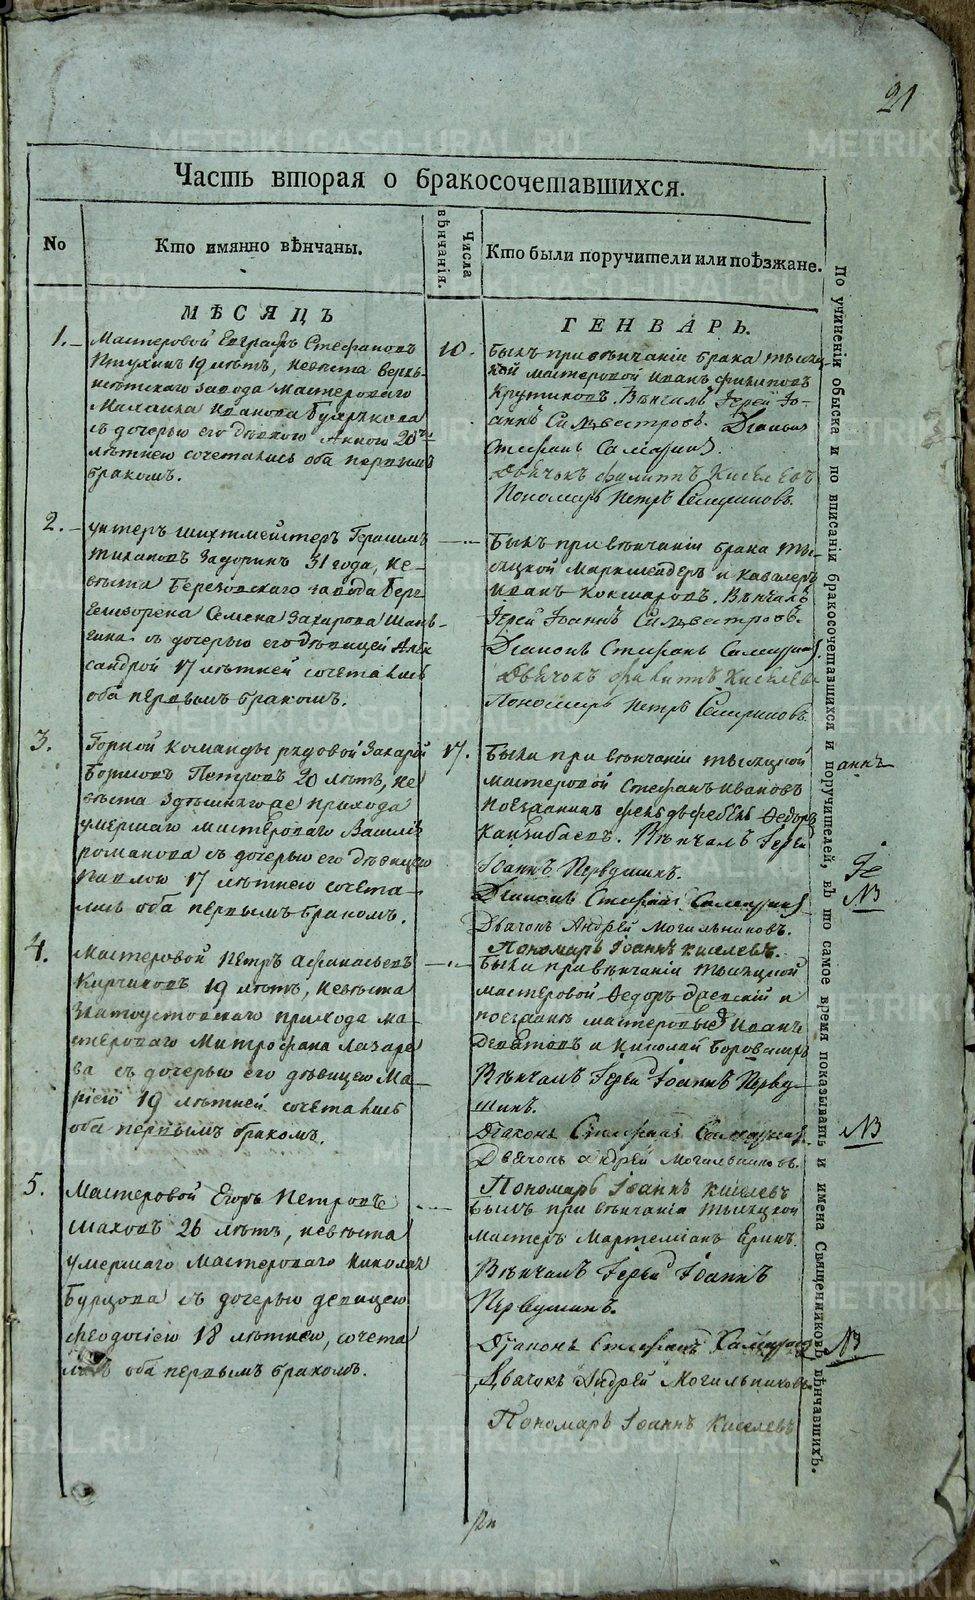 21
Часть вторая о бракосочетавшихся.
No
Кто имянно вѣнчаны.
Числа вѣнчанія.
Кто были поручители или поѣзжане.
МѢСЯЦЪ
ГЕНВАРЬ.
1.
Мастеровой Евграфъ Стефановъ
Птухинъ 19 лѣтъ, невѣста верхъ-
исѣтскаго завода мастероваго
Иванова
съ дочерью его дѣвкою Анною 20ти
лѣтнею сочетались оба первымъ
бракомъ.
10.
Былъ при вѣнчаніи брака тысяц
кой мастеровой Иванъ Филиповъ
Крутиковъ. Вѣнчалъ Іерей Іо-
аннъ Сильвестровъ. Діаконъ
Стефанъ Самаринъ
Дьячокъ Филиппъ Киселевъ
Пономарь Петръ Серапионовъ.
2.
унтеръ шихтмейстеръ Герасимъ
31 года, не-
вѣста Березовскаго завода Берг
гешворена Семена Захарова Шань-
гина съ дочерью его дѣвицей Алек
сандрой 17 лѣтней сочетались
оба первымъ бракомъ.
Былъ при вѣнчаніи брака ты-
сяцкой Маркшейдеръ и кавалеръ
Иванъ Кокшаровъ. Вѣнчалъ
Іерей Іоаннъ Сильвестровъ.
Діаконъ Стефанъ Самаринъ.
Дьячокъ Филиппъ Киселевъ
Пономарь Петръ Серапионовъ.
3.
Горной команды рядовой Захарій
Борисовъ Петровъ 20 лѣтъ, не
вѣста здѣшняго же прихода
умершаго мастероваго Василія
романова съ дочерью его дѣвицею
Павлою 17 лѣтнею сочета-
лись оба первымъ бракомъ.
17.
Были при вѣнчаніи тысяцкой
мастеровой Стефанъ Ивановъ
поезжанинъ фельдфебель Федоръ
Канзибаевъ. Вѣнчалъ Іерей
Іоаннъ Первушинъ.
Діаконъ Стефанъ Самаринъ
Дьячокъ Андрей Могильниковъ.
Пономарь Іоаннъ Киселевъ.
4.
Мастеровой Петръ Афанасьевъ
Кирчиковъ 19 лѣтъ, невѣста
Златоустовскаго прихода ма-
стероваго Митрофана Лазаре
ва съ дочерью его дѣвицею Ма-
ріею 19 лѣтней сочетались
оба первымъ бракомъ.
Были при вѣнчаніи тысяцкой
мастеровой Федоръ и
поезжане мастеровые Иванъ
Девятовъ и Николай
Вѣнчалъ Іерей Іоаннъ Перву-
шинъ.
Діаконъ Стефанъ Самаринъ
Дьячокъ Андрей Могильниковъ.
Пономарь Іоаннъ Киселевъ
5.
Мастеровой Егоръ Петровъ
Шаховъ 26 лѣтъ, невѣста
умершаго мастероваго Николая
Бурцова съ дочерью девицею
Феодосіею 18 лѣтнею, сочета
лись оба первымъ бракомъ.
Былъ при вѣнчаніи тысяцкой
мастеръ Мартеміанъ Еринъ.
Вѣнчалъ Іерей Іоаннъ
Первушинъ.
Діаконъ Стефанъ Самаринъ
Дьячокъ Андрей Могильниковъ
Пономарь Іоаннъ Киселевъ
По учиненіи обыска и по вписаніи бракосочетавшихся и поручителей, въ то самое время показывать и имена Священниковъ вѣнчавшихъ.
NB
NB
NB
METRIKI.GASO-URAL.RU